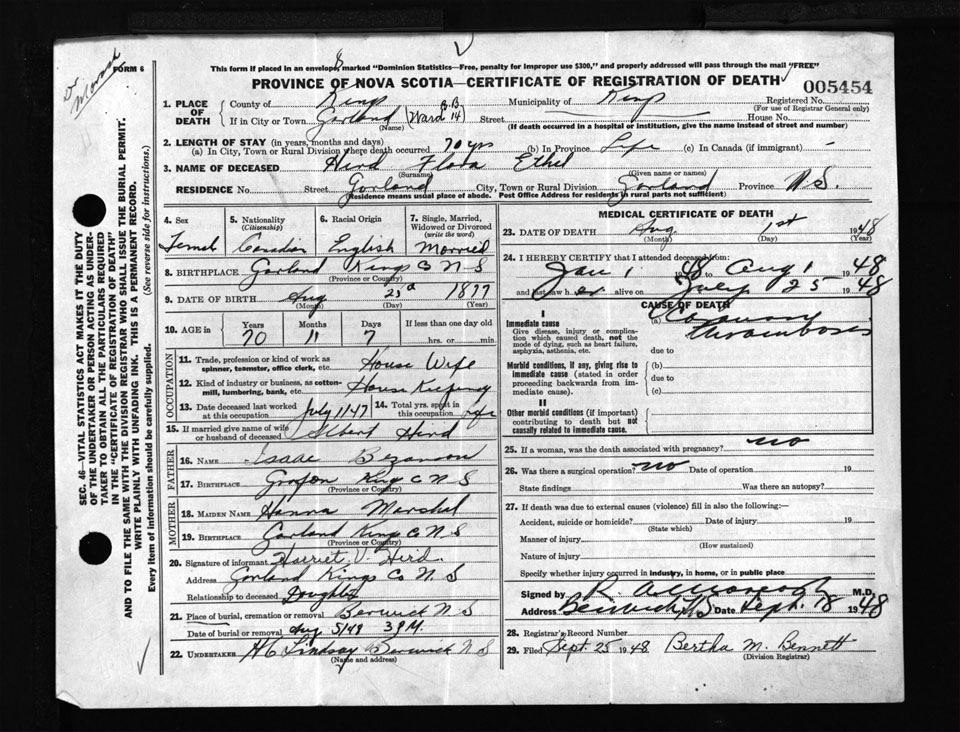 Dr
FORM 6
This form if placed in an envelope, marked "Dominion Statistics—Free, penalty for improper use $300," and properly addressed will pass through the mail "FREE"
PROVINCE OF NOVA SCOTIA—CERTIFICATE OF REGISTRATION OF DEATH
005454
1. PLACE OF DEATH
County of Kings Municipality of Kings Registered No.
(For use of Registrar General only)
If in City or Town Garland (Ward 14) Street House No.
(Name) (If death occurred in a hospital or institution, give the name instead of street and number)
2. LENGTH OF STAY (in years, months and days)
(a) In City, Town or Rural Division where death occurred 70 yrs (b) In Province Life (c) In Canada (if immigrant) -
3. NAME OF DECEASED Hird Flora Ethel
(Surname) (Given name or names)
RESIDENCE No. Street Garland City, Town or Rural Division Garland Province N.S.
(Residence means usual place of abode. Post Office Address for residents in rural parts not sufficient)
4. Sex Femal
5. Nationality (Citizenship) Canadian
6. Racial Origin English
7. Single, Married, Widowed or Divorced (write the word) Married
8. BIRTHPLACE Garland Kings Co N S
(Province or Country)
9. DATE OF BIRTH Aug 1877
(Month) (Day) (Year)
10. AGE in Years Months Days If less than one day old
70 11 7 hrs. or min.
OCCUPATION
11. Trade, profession or kind of work as spinner, teamster, office clerk, etc. House Wife
12. Kind of industry or business, as cotton-mill, lumbering, bank, etc. House Keeping
13. Date deceased last worked at this occupation July 1/47
14. Total yrs. spent in this occupation Life
15. If married give name of wife or husband of deceased Albert Hird
FATHER
16. NAME Isaac Bezanson
17. BIRTHPLACE Grafton Kings Co N S
(Province or Country)
MOTHER
18. MAIDEN NAME Hanna Marshal
19. BIRTHPLACE Garland Kings Co N S
(Province or Country)
20. Signature of informant Harriet V. Hird
Address Garland Kings Co N. S
Relationship to deceased Doughter
21. Place of burial, cremation or removal Berwick N S
Date of burial or removal Aug 5/48 3 P.M.
22. UNDERTAKER H C Lindsay Berwick N S
(Name and address)
MEDICAL CERTIFICATE OF DEATH
23. DATE OF DEATH Aug 1st 1948
(Month) (Day) (Year)
24. I HEREBY CERTIFY that I attended deceased from:
Jan 1 1948 to Aug 1 1948
and last saw her alive on July 25 1948
CAUSE OF DEATH
I
Immediate cause
Give disease, injury or complication which caused death, not the mode of dying, such as heart failure, asphyxia, asthenia, etc.
(a) Coronary Thrombosis
due to
Morbid conditions, if any, giving rise to immediate cause (stated in order proceeding backwards from immediate cause).
(b)
due to
(c)
II
Other morbid conditions (if important) contributing to death but not causally related to immediate cause.
25. If a woman, was the death associated with pregnancy? no
26. Was there a surgical operation? no Date of operation 19
State findings Was there an autopsy?
27. If death was due to external causes (violence) fill in also the following:—
Accident, suicide or homicide? Date of injury 19
(State which)
Manner of injury
(How sustained)
Nature of injury
Specify whether injury occurred in industry, in home, or in public place
Signed by M.D.
Address Berwick NS Date Sept. 18 1948
28. Registrar's Record Number
29. Filed Sept. 25 1948 Bertha M. Bennett
(Division Registrar)
SEC. 46—VITAL STATISTICS ACT MAKES IT THE DUTY
OF THE UNDERTAKER OR PERSON ACTING AS UNDER-
TAKER TO OBTAIN ALL THE PARTICULARS REQUIRED
IN THE "CERTIFICATE OF REGISTRATION OF DEATH"
AND TO FILE THE SAME WITH THE DIVISION REGISTRAR WHO SHALL ISSUE THE BURIAL PERMIT.
WRITE PLAINLY WITH UNFADING INK. THIS IS A PERMANENT RECORD.
Every item of information should be carefully supplied. (See reverse side for instructions.)